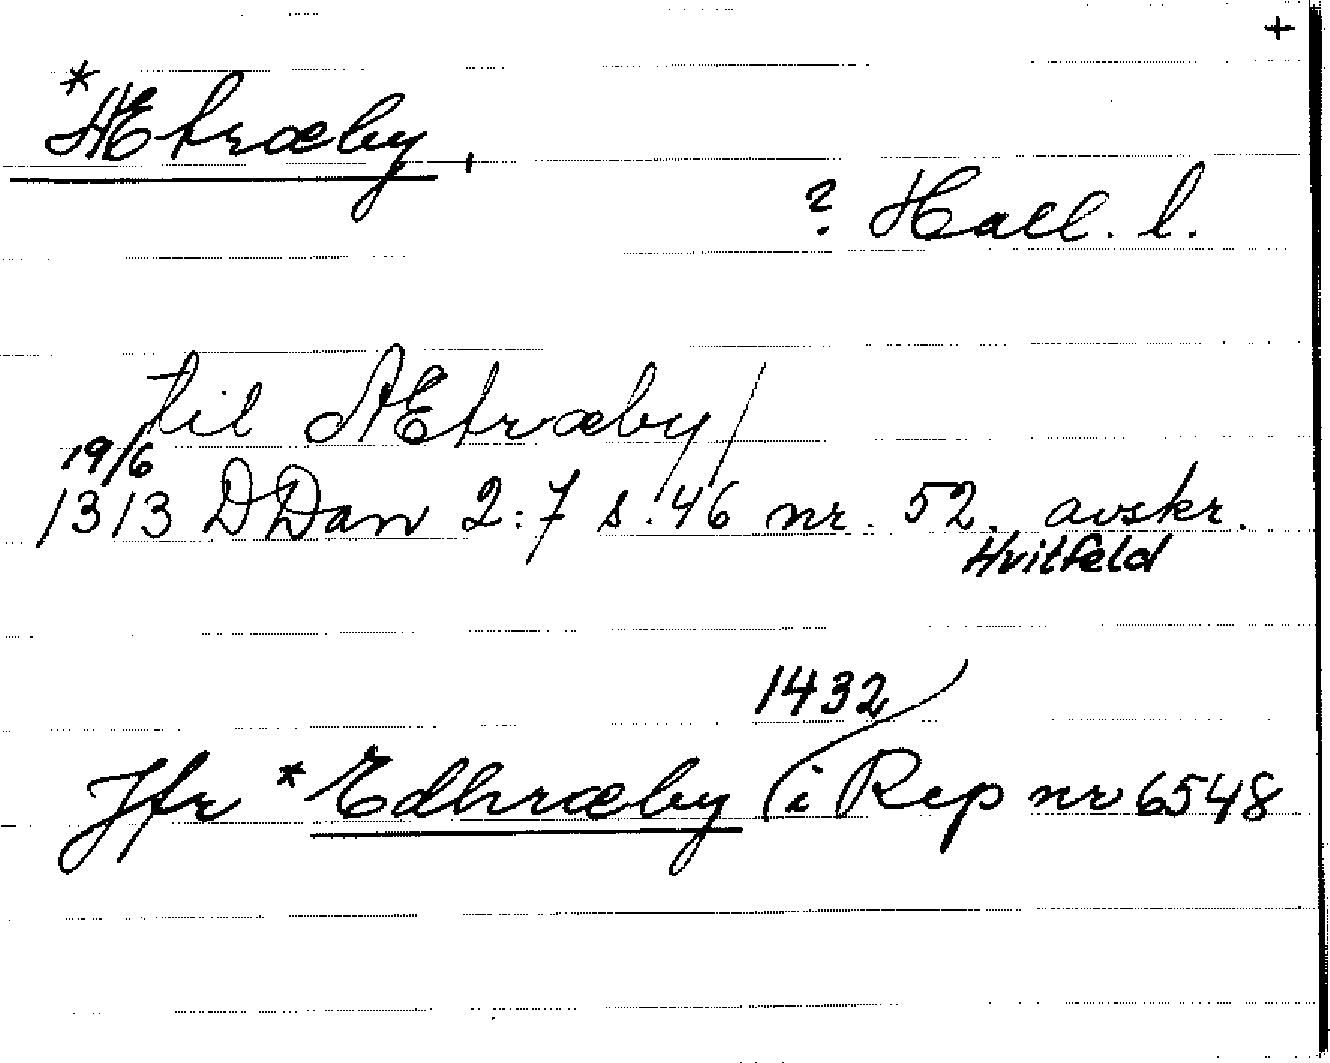 +
*Ætræby,
? Hall. l.
til Ætræby/
19/6
1313 DDan 2:7 s. 46 nr. 52. avskr.
Hvitfeld
1432
Jfr *Edhræby (i Rep nr 6548